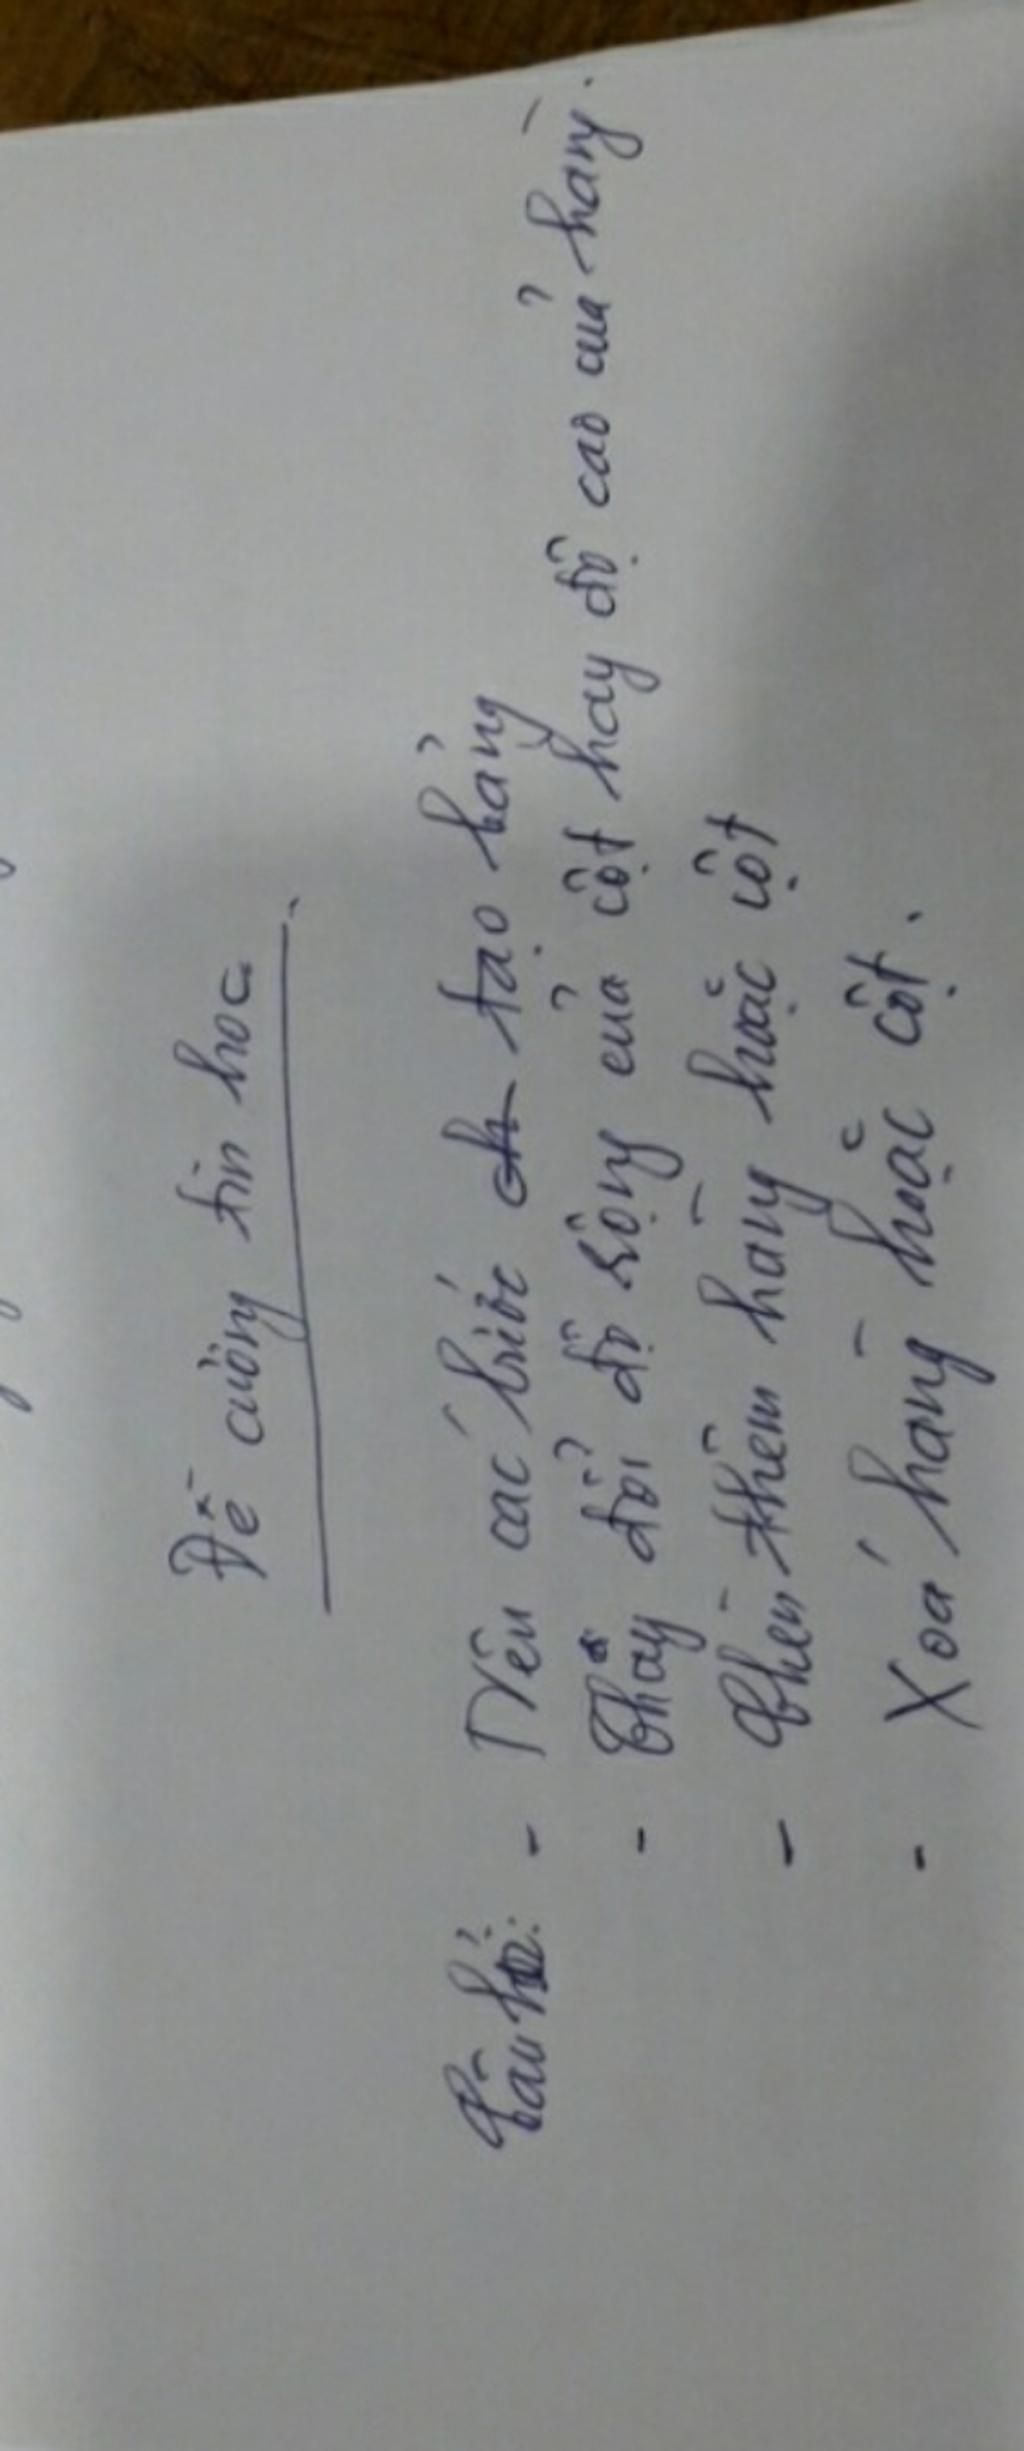 Đề cương tin học
Câu hỏi: - Nêu các bước tạo bảng
- Thay đổi độ rộng của cột hay độ cao của hàng.
- Chèn thêm hàng hoặc cột
- Xoá hàng hoặc cột.